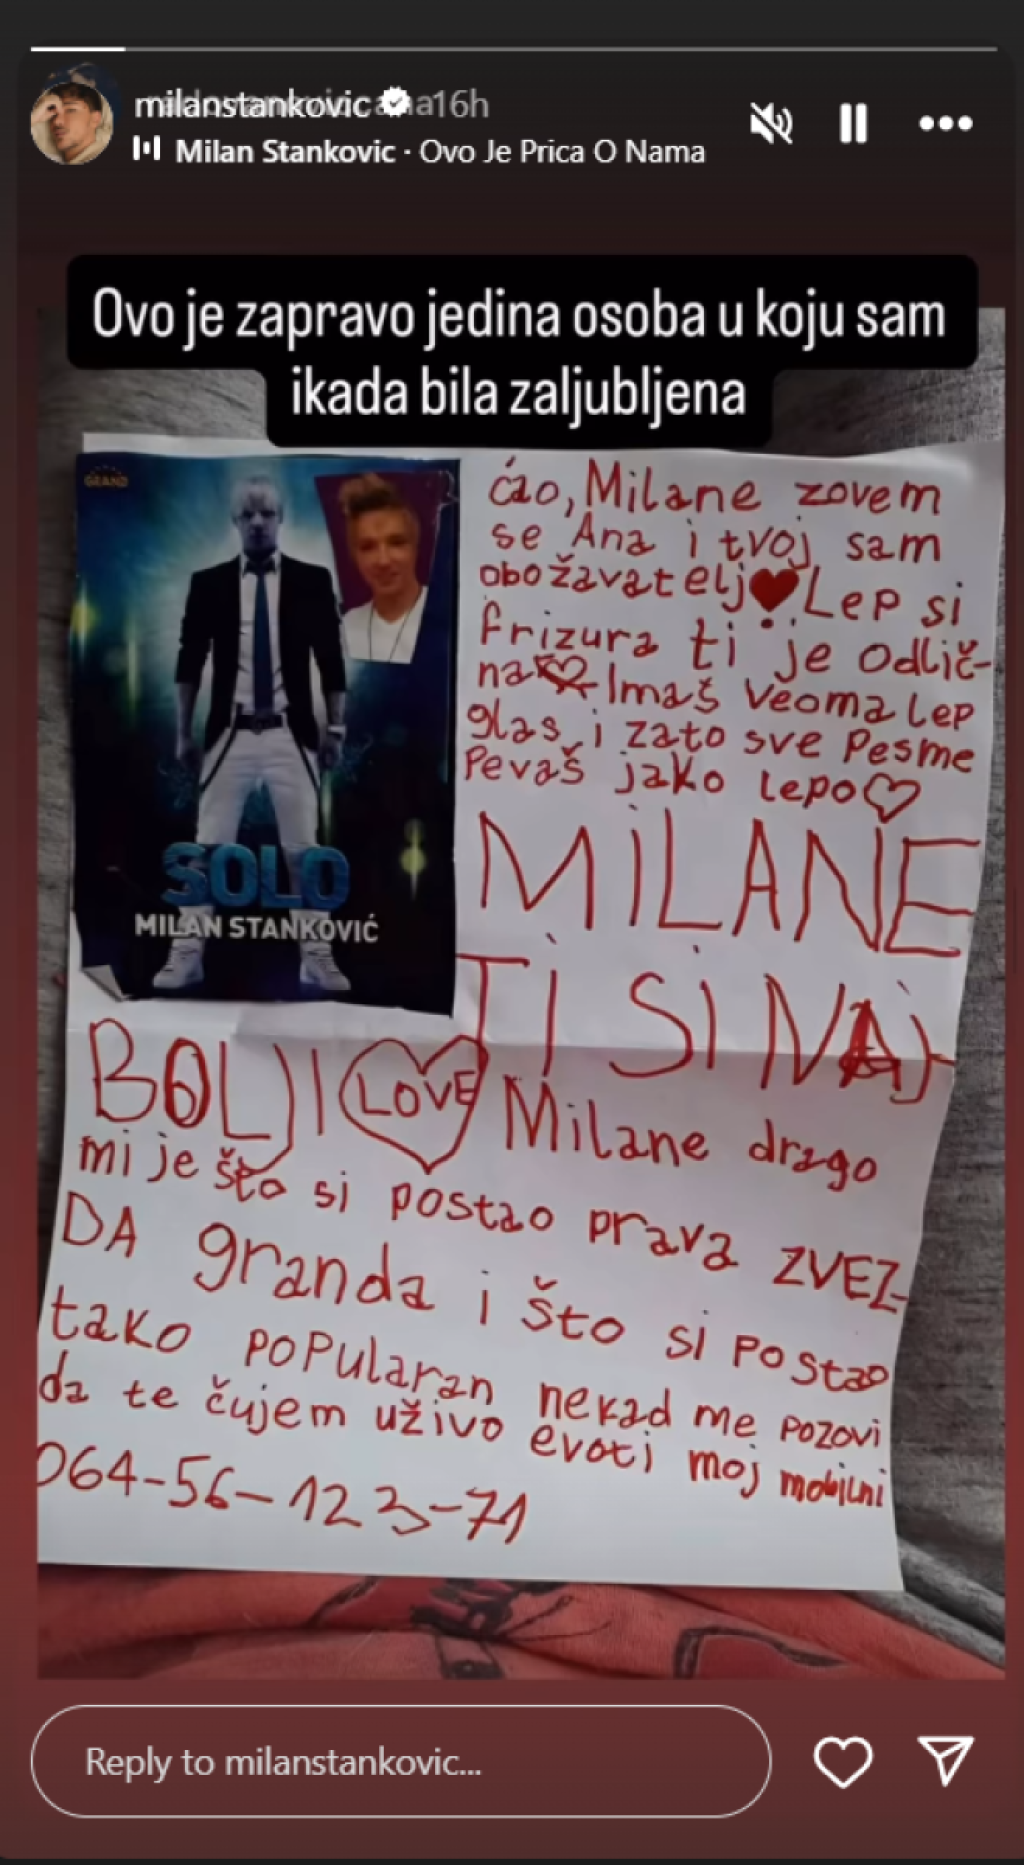 milanstankovic 16h
Milan Stankovic · Ovo Je Prica O Nama
Ovo je zapravo jedina osoba u koju sam
ikada bila zaljubljena
GRAND
SOLO
MILAN STANKOVIĆ
ćao, Milane zovem
se Ana i tvoj sam
obožavatelj Lep si
frizura ti je odlič-
na Imaš veoma lep
glas i zato sve Pesme
Pevaš jako lepo
MiLANE
Ti Si NAj-
BOLJI LOVE Milane drago
mi je što si postao prava ZVEZ-
DA granda i što si postao
tako popularan nekad me pozovi
da te čujem uživo evoti moj mobilni
064-56-123-71
Reply to milanstankovic...